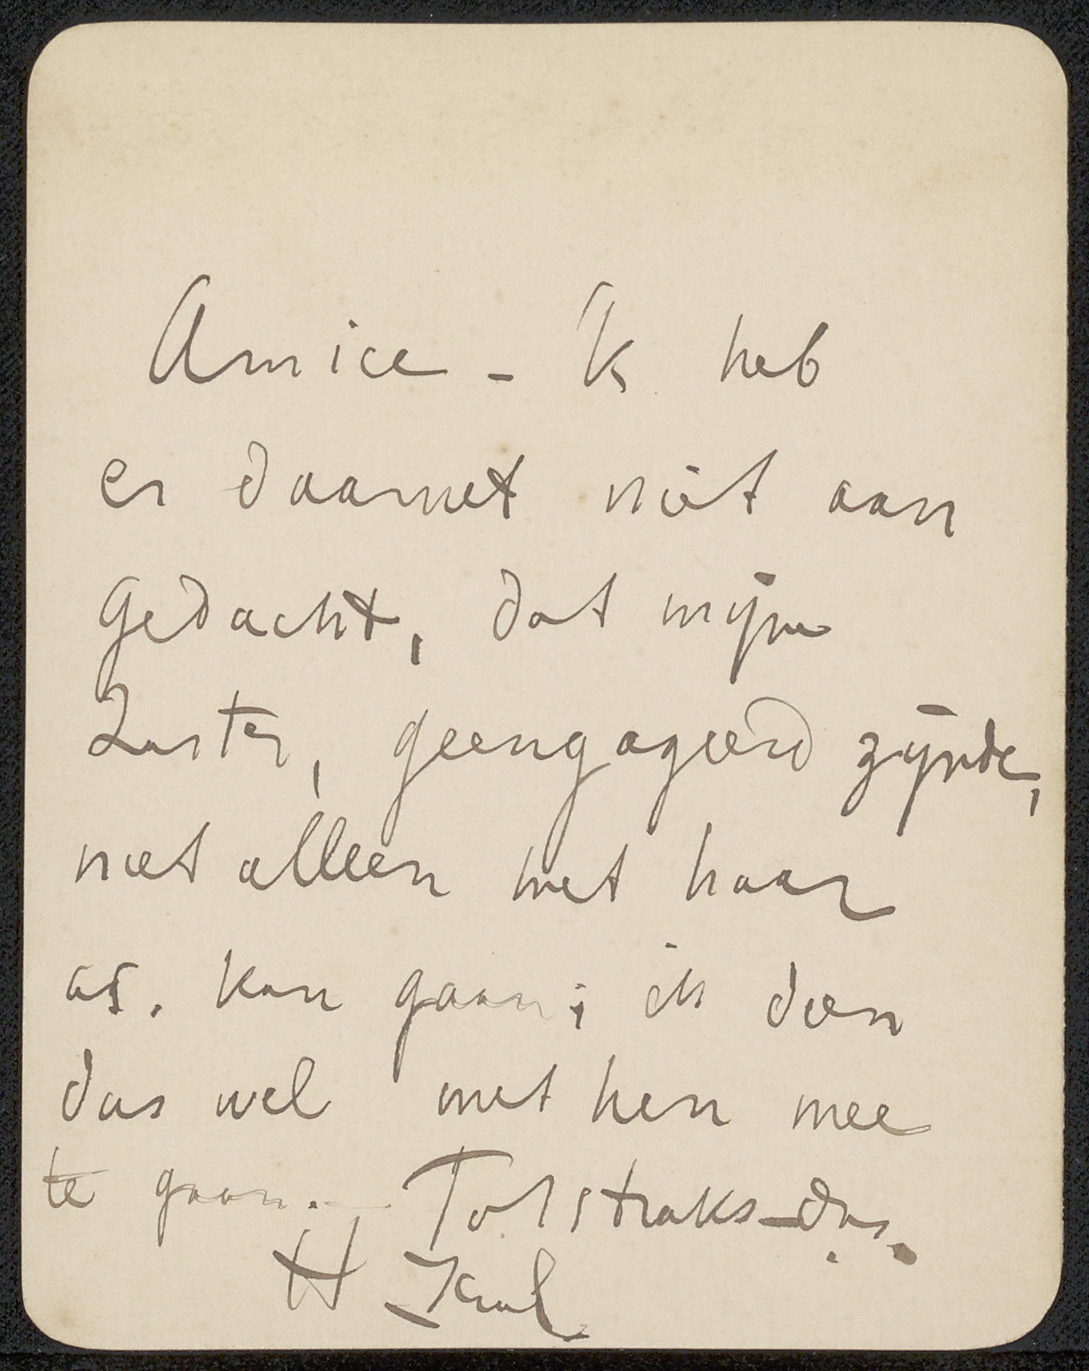 Amice - Ik heb
er daarnet niet aan
gedacht, dat mijne
Zuster, geengageerd zijnde,
niet alleen met haar
as. kan gaan; ik dien
dus wel met hen mee
te gaan. - Tot straks dus.
H Krul